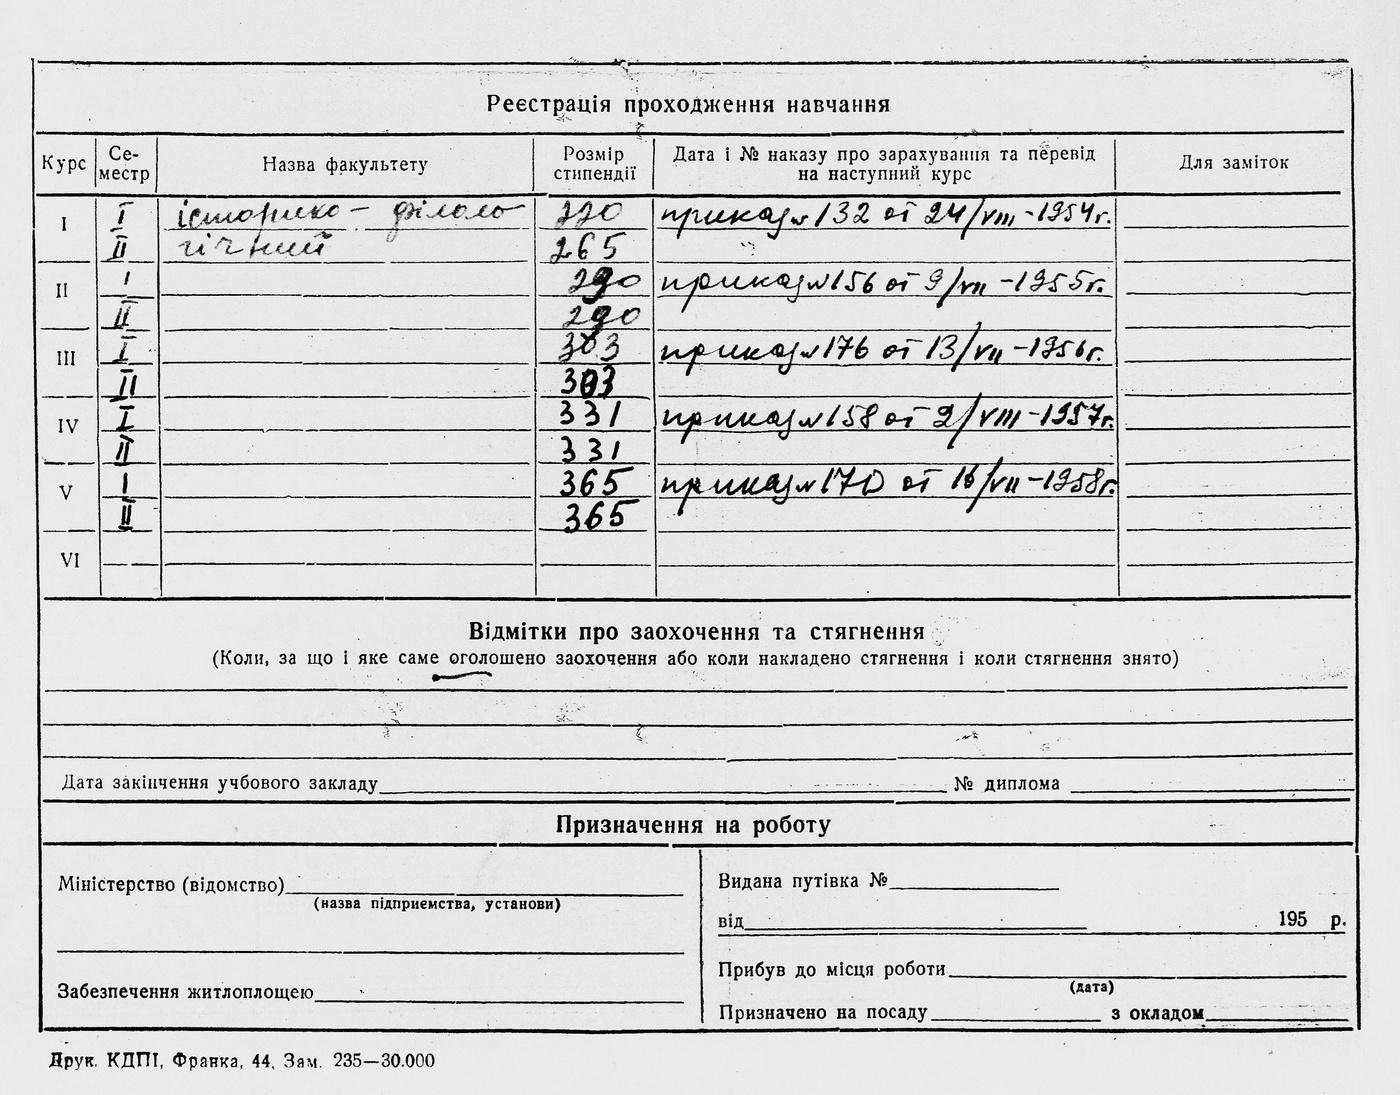 Реєстрація проходження навчання
Курс Се-местр Назва факультету Розмір стипендії Дата і № наказу про зарахування та перевід на наступний курс Для заміток
I I історико- філоло 220 приказ № 132 от 24/VIII-1954г.
II гічний 265
II I 290 приказ № 156 от 9/VII-1955г.
II 290
III I 303 приказ № 176 от 13/VII-1956г.
II 303
IV I 331 приказ № 158 от 2/VIII-1957г.
II 331
V I 365 приказ № 170 от 16/VII-1958г.
II 365
VI
Відмітки про заохочення та стягнення
(Коли, за що і яке саме оголошено заохочення або коли накладено стягнення і коли стягнення знято)
Дата закінчення учбового закладу № диплома
Призначення на роботу
Міністерство (відомство)
(назва підприємства, установи)
Забезпечення житлоплощею
Видана путівка №
від 195 р.
Прибув до місця роботи
(дата)
Призначено на посаду з окладом
Друк. КДПІ, Франка, 44, Зам. 235—30.000